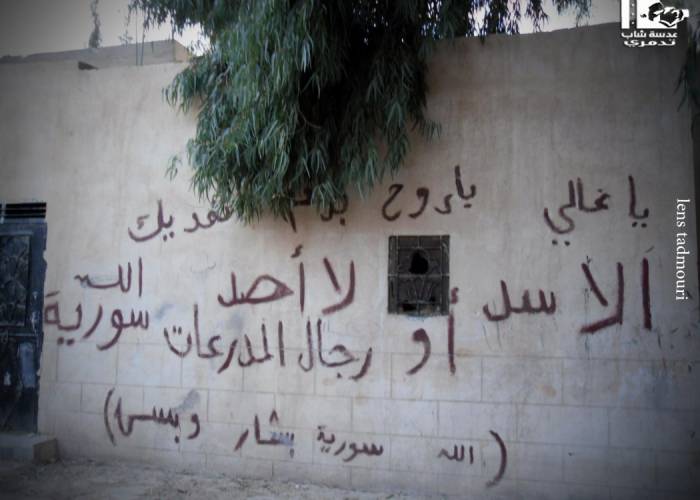 عدسة شاب تدمري
lens tadmouri
يا غالي يا روح بدم نفديك
الاسد أو لا أحد الله
رجال المدرعات سورية
(الله سورية بشار وبس)